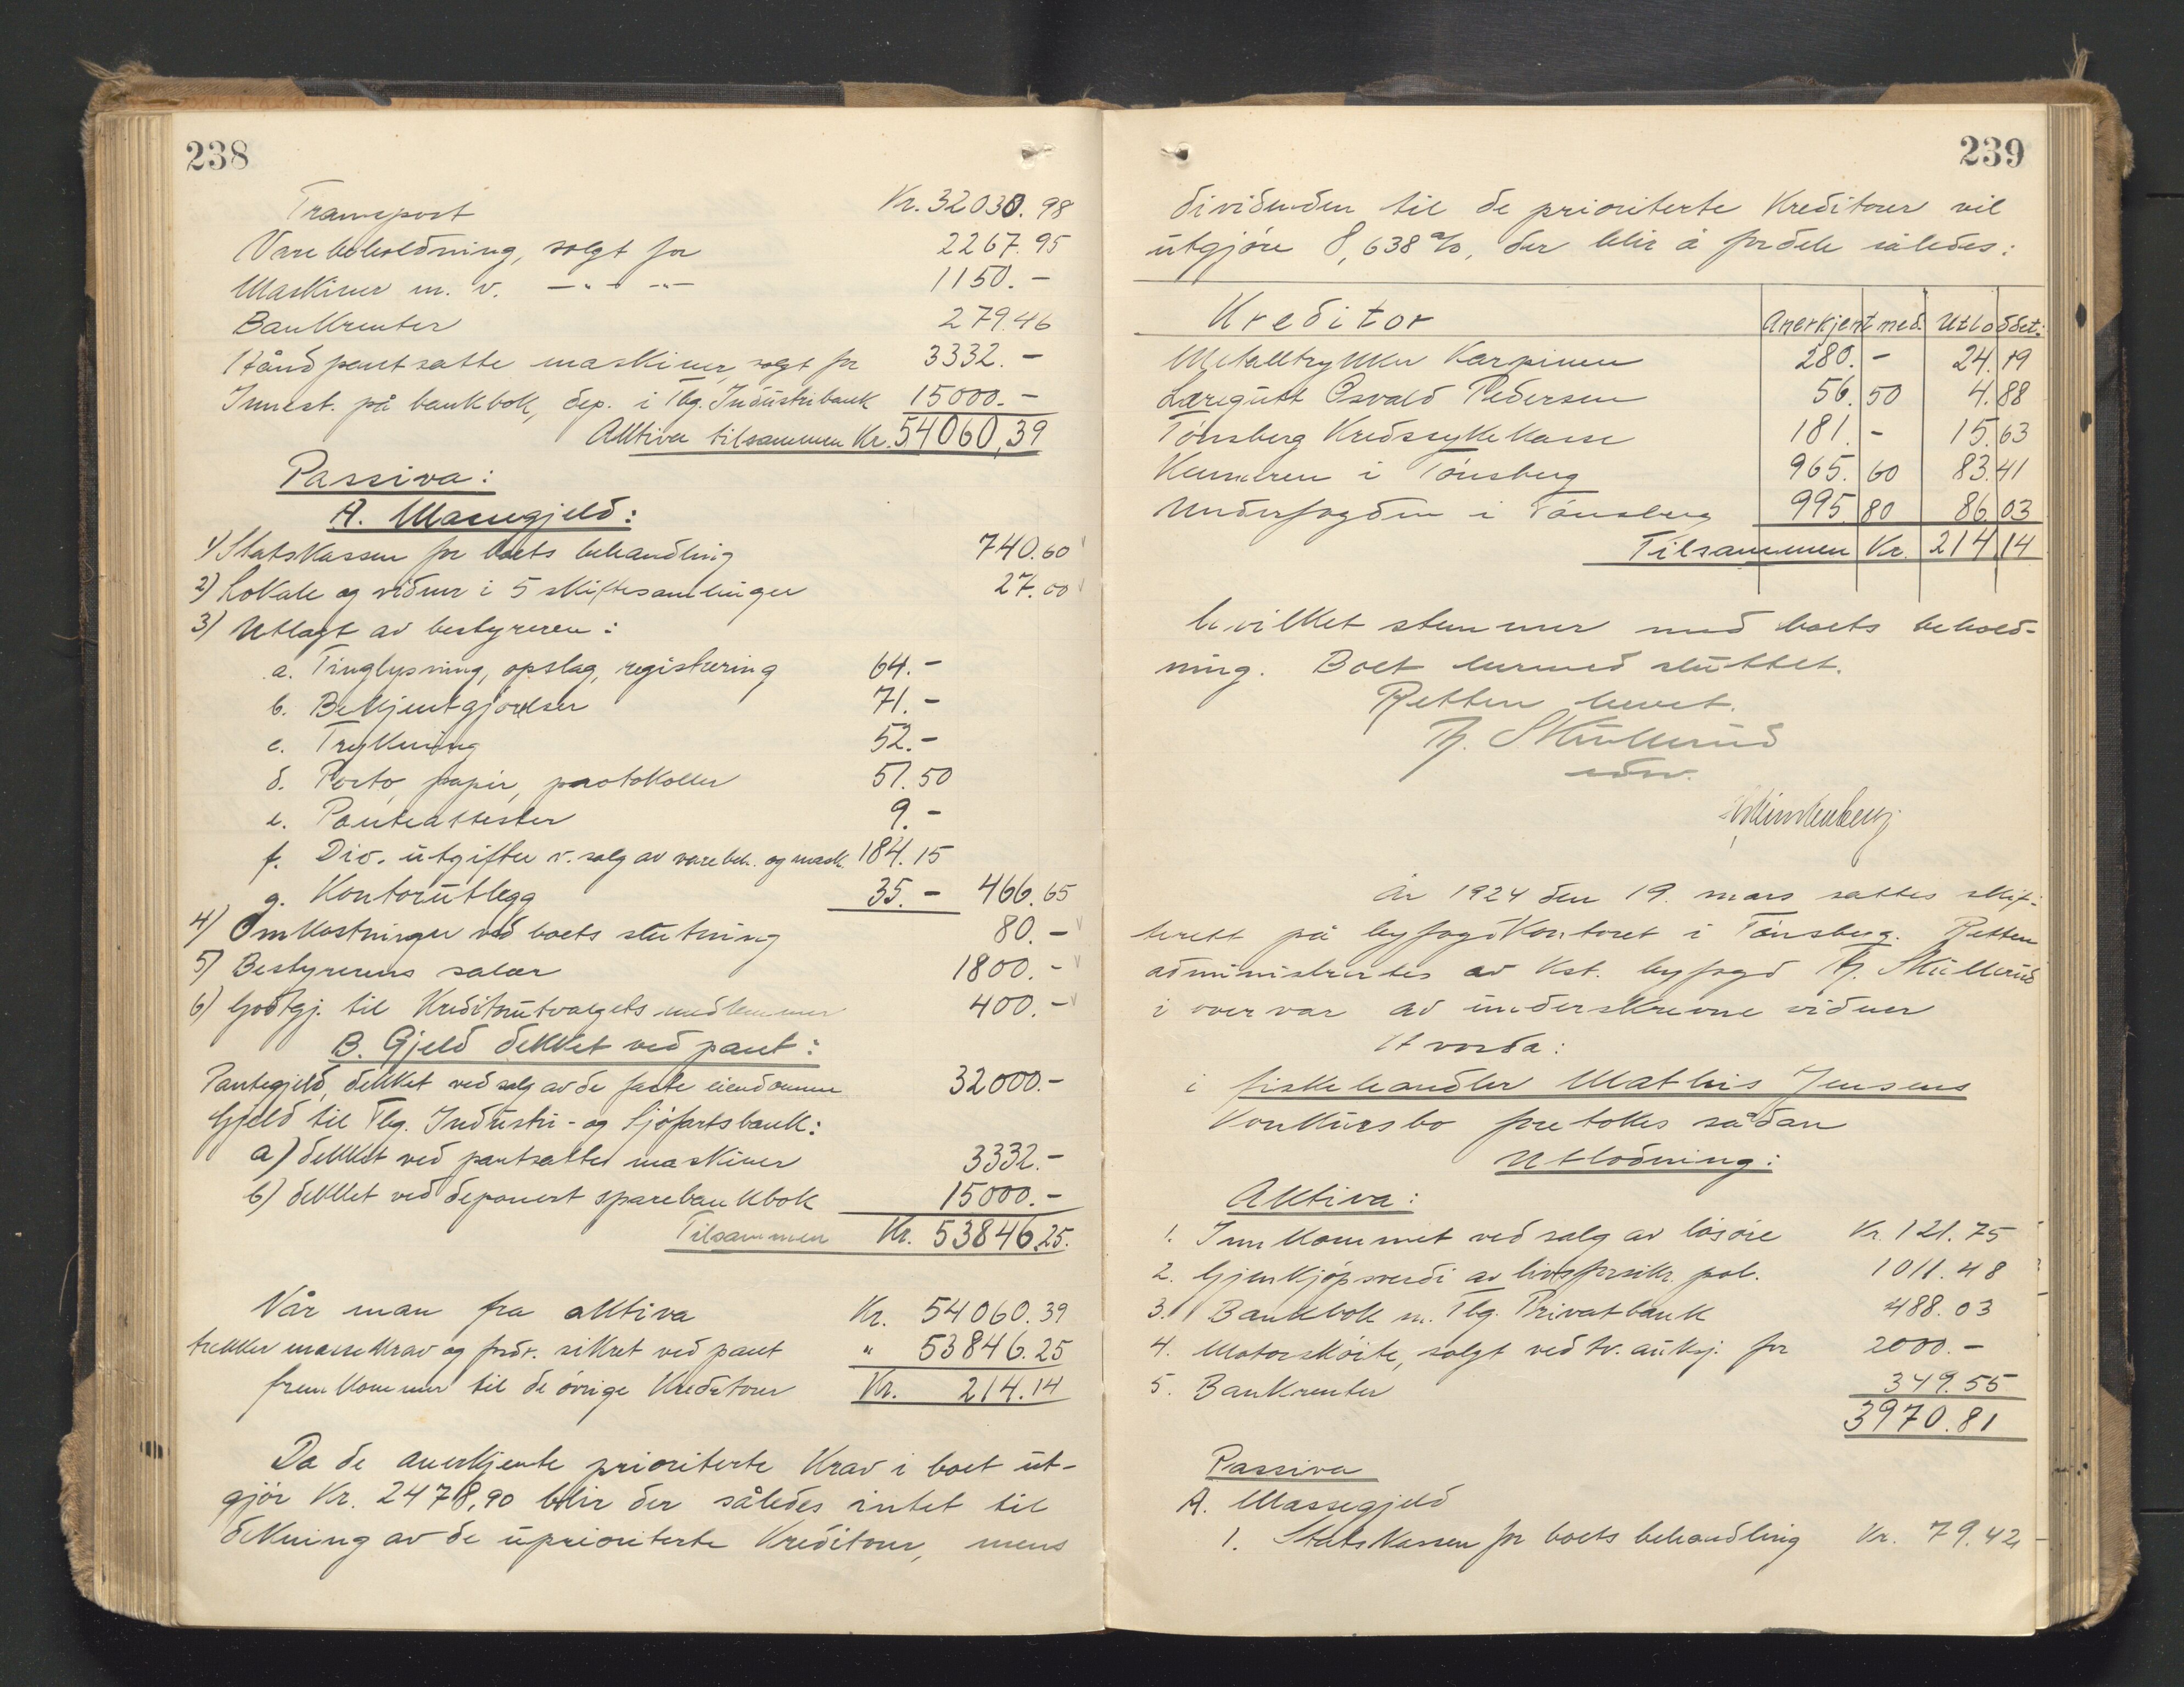 238
Transport Kr. 32030.98
Varebeholdning, solgt for 2267.95
Maskiner m. v. — " — " — 1150.-
Bankrenter 279.46
Håndpantsatte maskiner, solgt for 3332.-
Innest. på bankbok, dep. i Tbg. Industribank 15000.-
Aktiva tilsammen Kr. 54060,39
Passiva:
A. Massegjeld:
1) Statskassen for boets behandling 740.60
2) Lokale og vidner i 5 skiftesamlinger 27.00
3) Utlagt av bestyreren:
a. Tinglysning, opslag, registrering 64.-
b. Bekjentgjørelser 71.-
c. Trykning 52.-
d. Porto, papir, protokoller 51.50
e. Panteattester 9.-
f. Div. utgifter v. salg av varebeh. og mask. 184.15
g. Kontorutlegg 35.- 466.65
4) Omkostninger ved boets slutning 80.-
5) Bestyrerens salær 1800.-
6) Godtgj. til Kreditorutvalgets medlemmer 400.-
B. Gjeld dekket ved pant:
Pantegjeld, dekket ved salg av de faste eiendomme 32000.-
Gjeld til Tbg. Industri- og Sjøfartsbank:
a) dekket ved pantsatte maskiner 3332.-
b) dekket ved deponert sparebankbok 15000.-
Tilsammen Kr. 53846.25.
Når man fra aktiva Kr. 54060.39
trekker massekrav og fordr. sikret ved pant " 53846.25
fremkommer til de øvrige Kreditorer Kr. 214.14
Da de anerkjente prioriterte Krav i boet ut-
gjør Kr. 2478,90 blir der således intet til
dekning av de uprioriterte Kreditorer, mens
239
dividenden til de prioriterte Kreditorer vil
utgjøre 8,638 %, der blir å fordele således:
Kreditor Anerkjent med. Utloddet:
Metalltrykker Karpinen 280.- 24.19
Læregutt Osvald Pedersen 56.50 4.88
Tønsberg Kredssykekasse 181.- 15.63
Kemneren i Tønsberg 965.60 83.41
Underfogden i Tønsberg 995.80 86.03
Tilsammen Kr. 214.14
hvilket stemmer med boets behold-
ning. Boet hermed sluttet.
Retten hevet.
Th. Skullerud
edsv.
År 1924 den 19. mars sattes skif-
terett på byfogdkontoret i Tønsberg. Retten
administrertes av kst. byfogd Th. Skullerud
i overvær av underskrevne vidner
Hvorda:
i fiskehandler Mathis Jensens
Konkursbo foretokes sådan
Utlodning:
Aktiva:
1. Innkommet ved salg av løsøre Kr. 121.75
2. Gjenkjøpsverdi av livsforsikr. pol. 1011.48
3. Bankbok m. Tbg. Privatbank 488.03
4. Motorskøite, solgt ved tv. auksj. for 2000.-
5. Bankrenter 349.55
3970.81
Passiva
A. Massegjeld
1. Statskassen for boets behandling Kr. 79.42